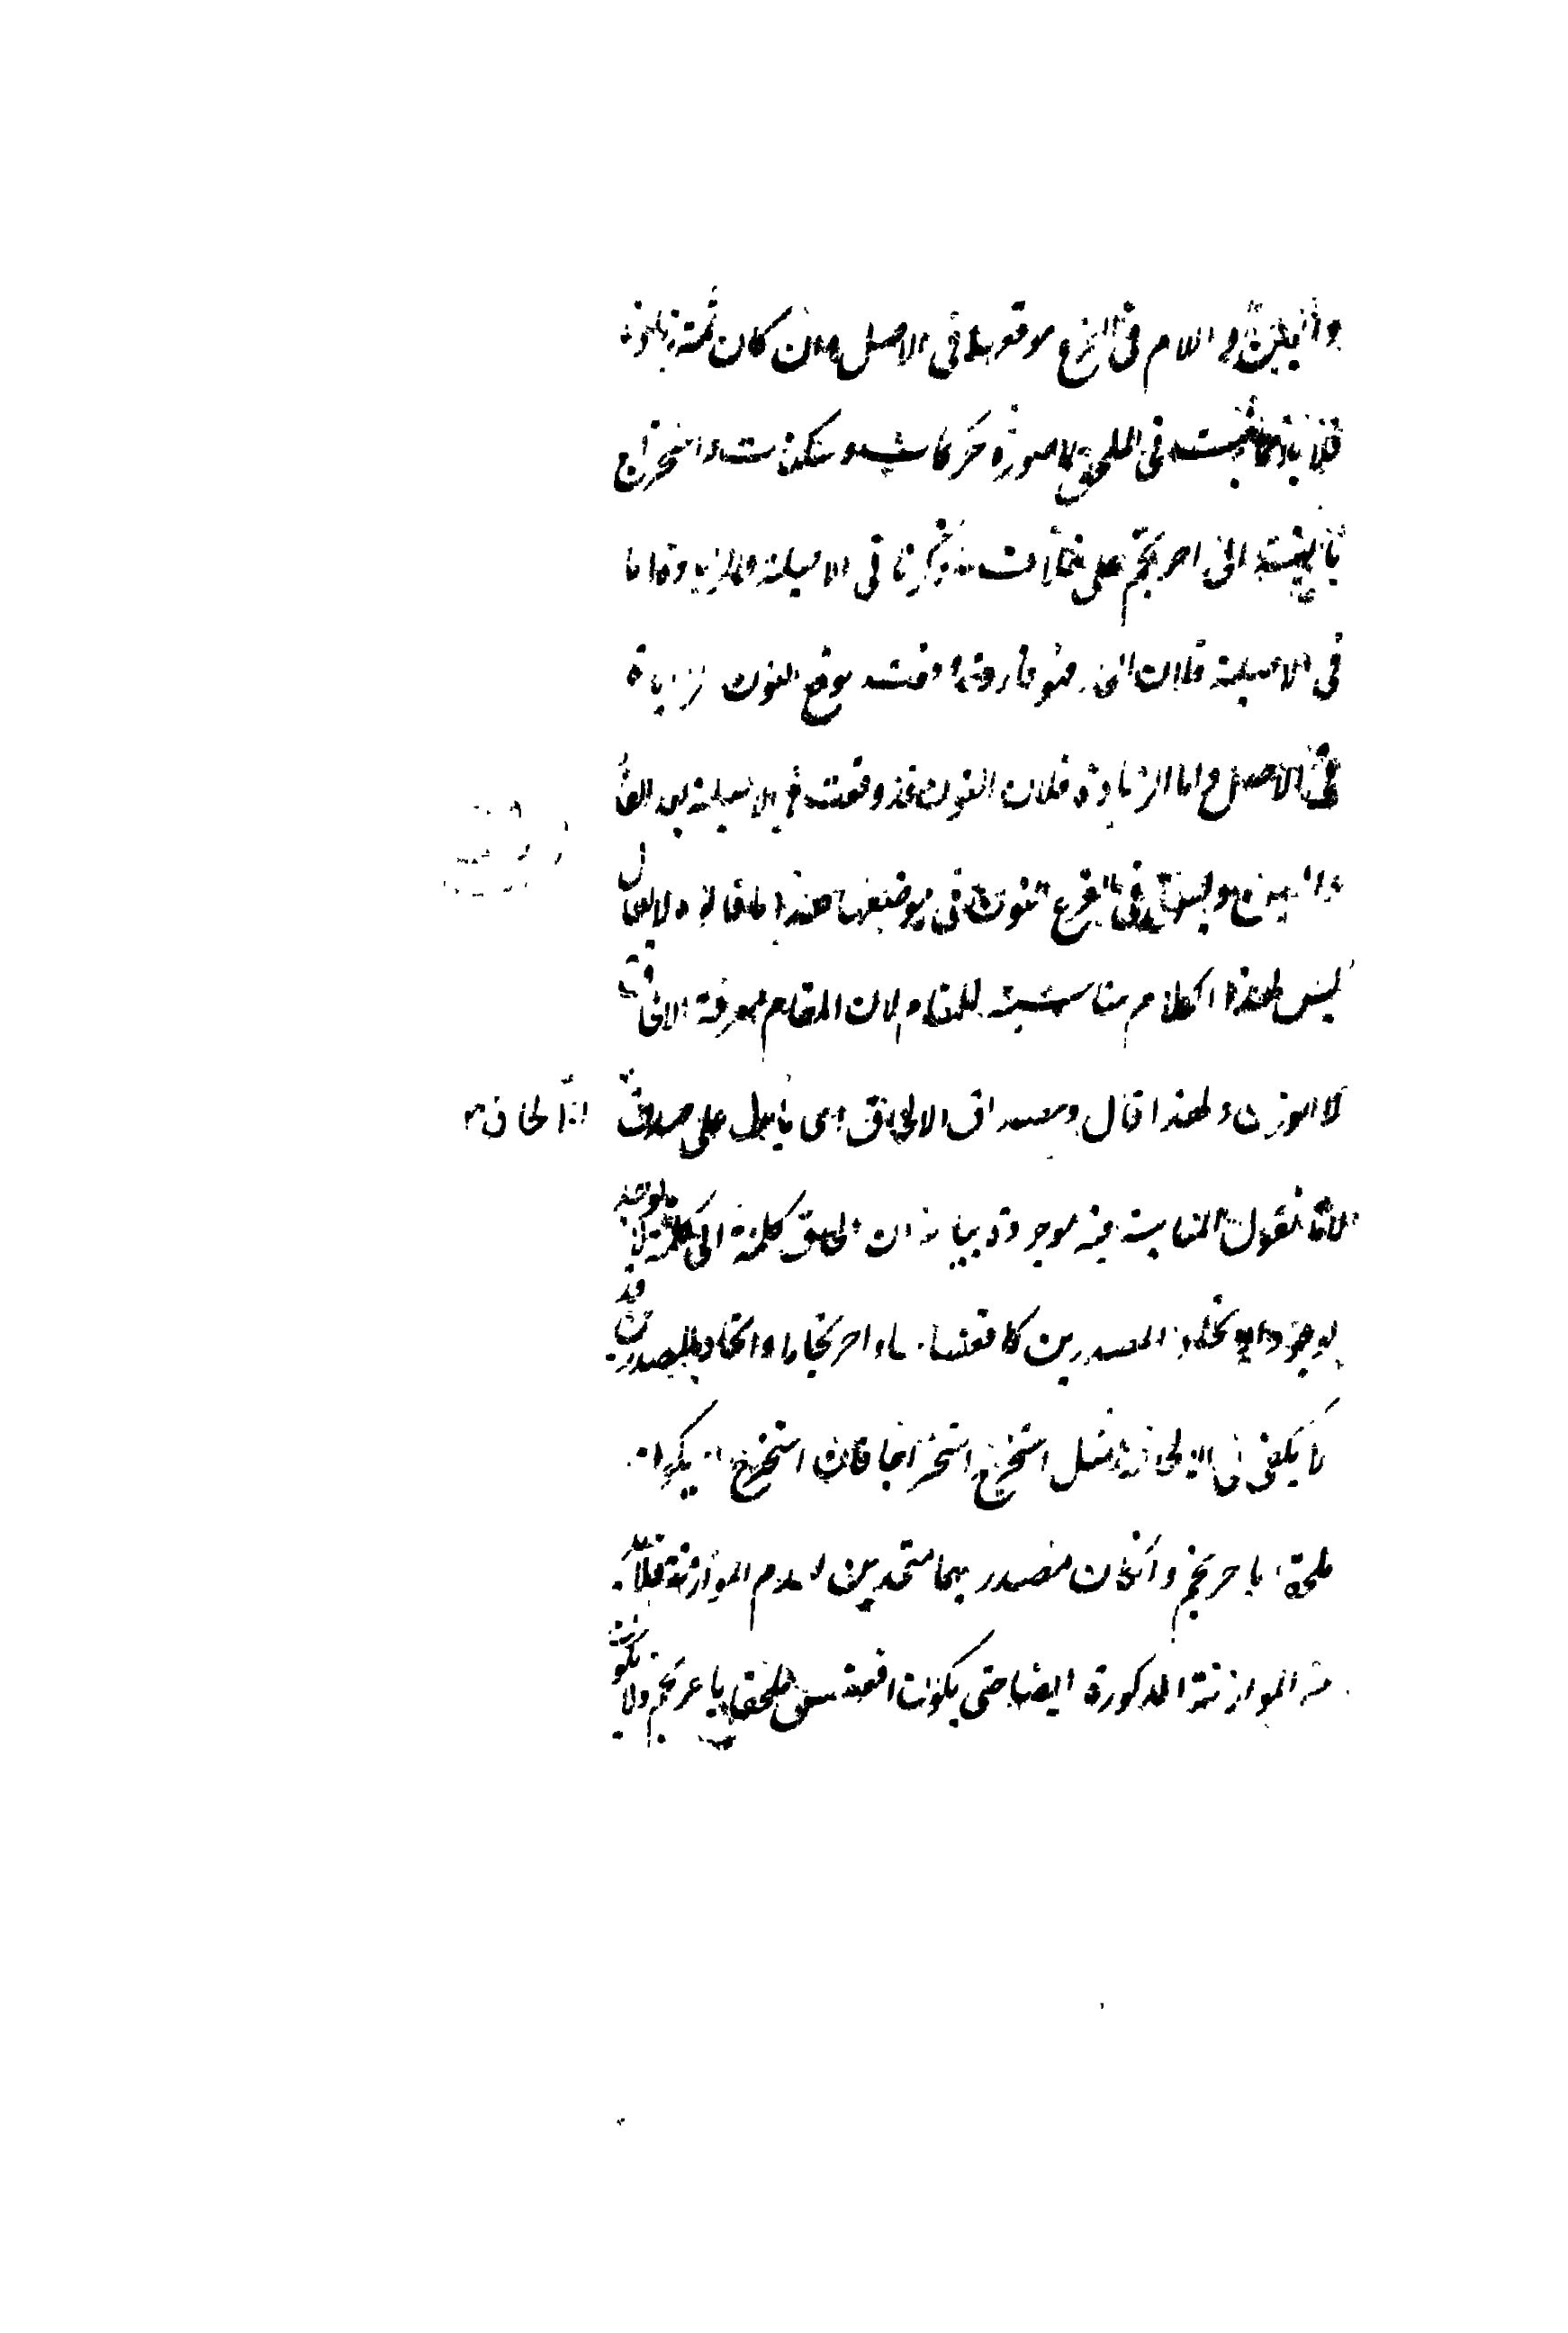 والعين واللام في الفرع موقعها في الاصل وان كان ثمة زيادة
فلا بد من في الملحق صورة حركات وسكنات واستخراج
بالنسبة الى احرنجم على خلاف ما ذكرنا في الاصلية والزيادة اما
في الاصلية فلان الخاء وهو فاء وقعت موقع النون زيادة
في الاصل واما الزيادة فلان النون قد وقعت في الاصلية بين الفاء
والعين وليس في الفرع النون في موضعها هذا ما قالوا ولا يقال
ليس لهذا الكلام مناسبة للمقام لان المقام معرفة الاتفاق
لا الوزن ولهذا قال ومصداق الالحاق اى ما يدل على صدق
الالحاق
لانا نقول المناسبة فيه موجودة بيانه ان الحاق كلمة الى كلمة لا يوجد
بوجود اتحاد المصدرين كاقعنساسا واحرنجاما واتحاد المصدرين قد
لا يكفى في الالحاق مثل استخرج استخراجا فان استخرج لا يكون
ملحقا باحرنجم وان كان مصدريهما متحدين لعدم الموازنة فلا بد
من الموازنة المذكورة ايضا حتى يكون اقعنسس ملحقا باحرنجم ولا يكون